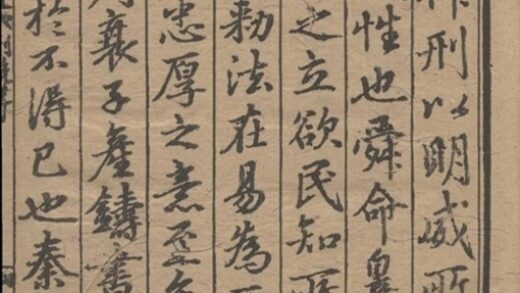 作刑以明威所
性也舜命皋
之立欲民知所
勑法在易為
忠厚之意至
衰子產鑄書
於不得已也秦